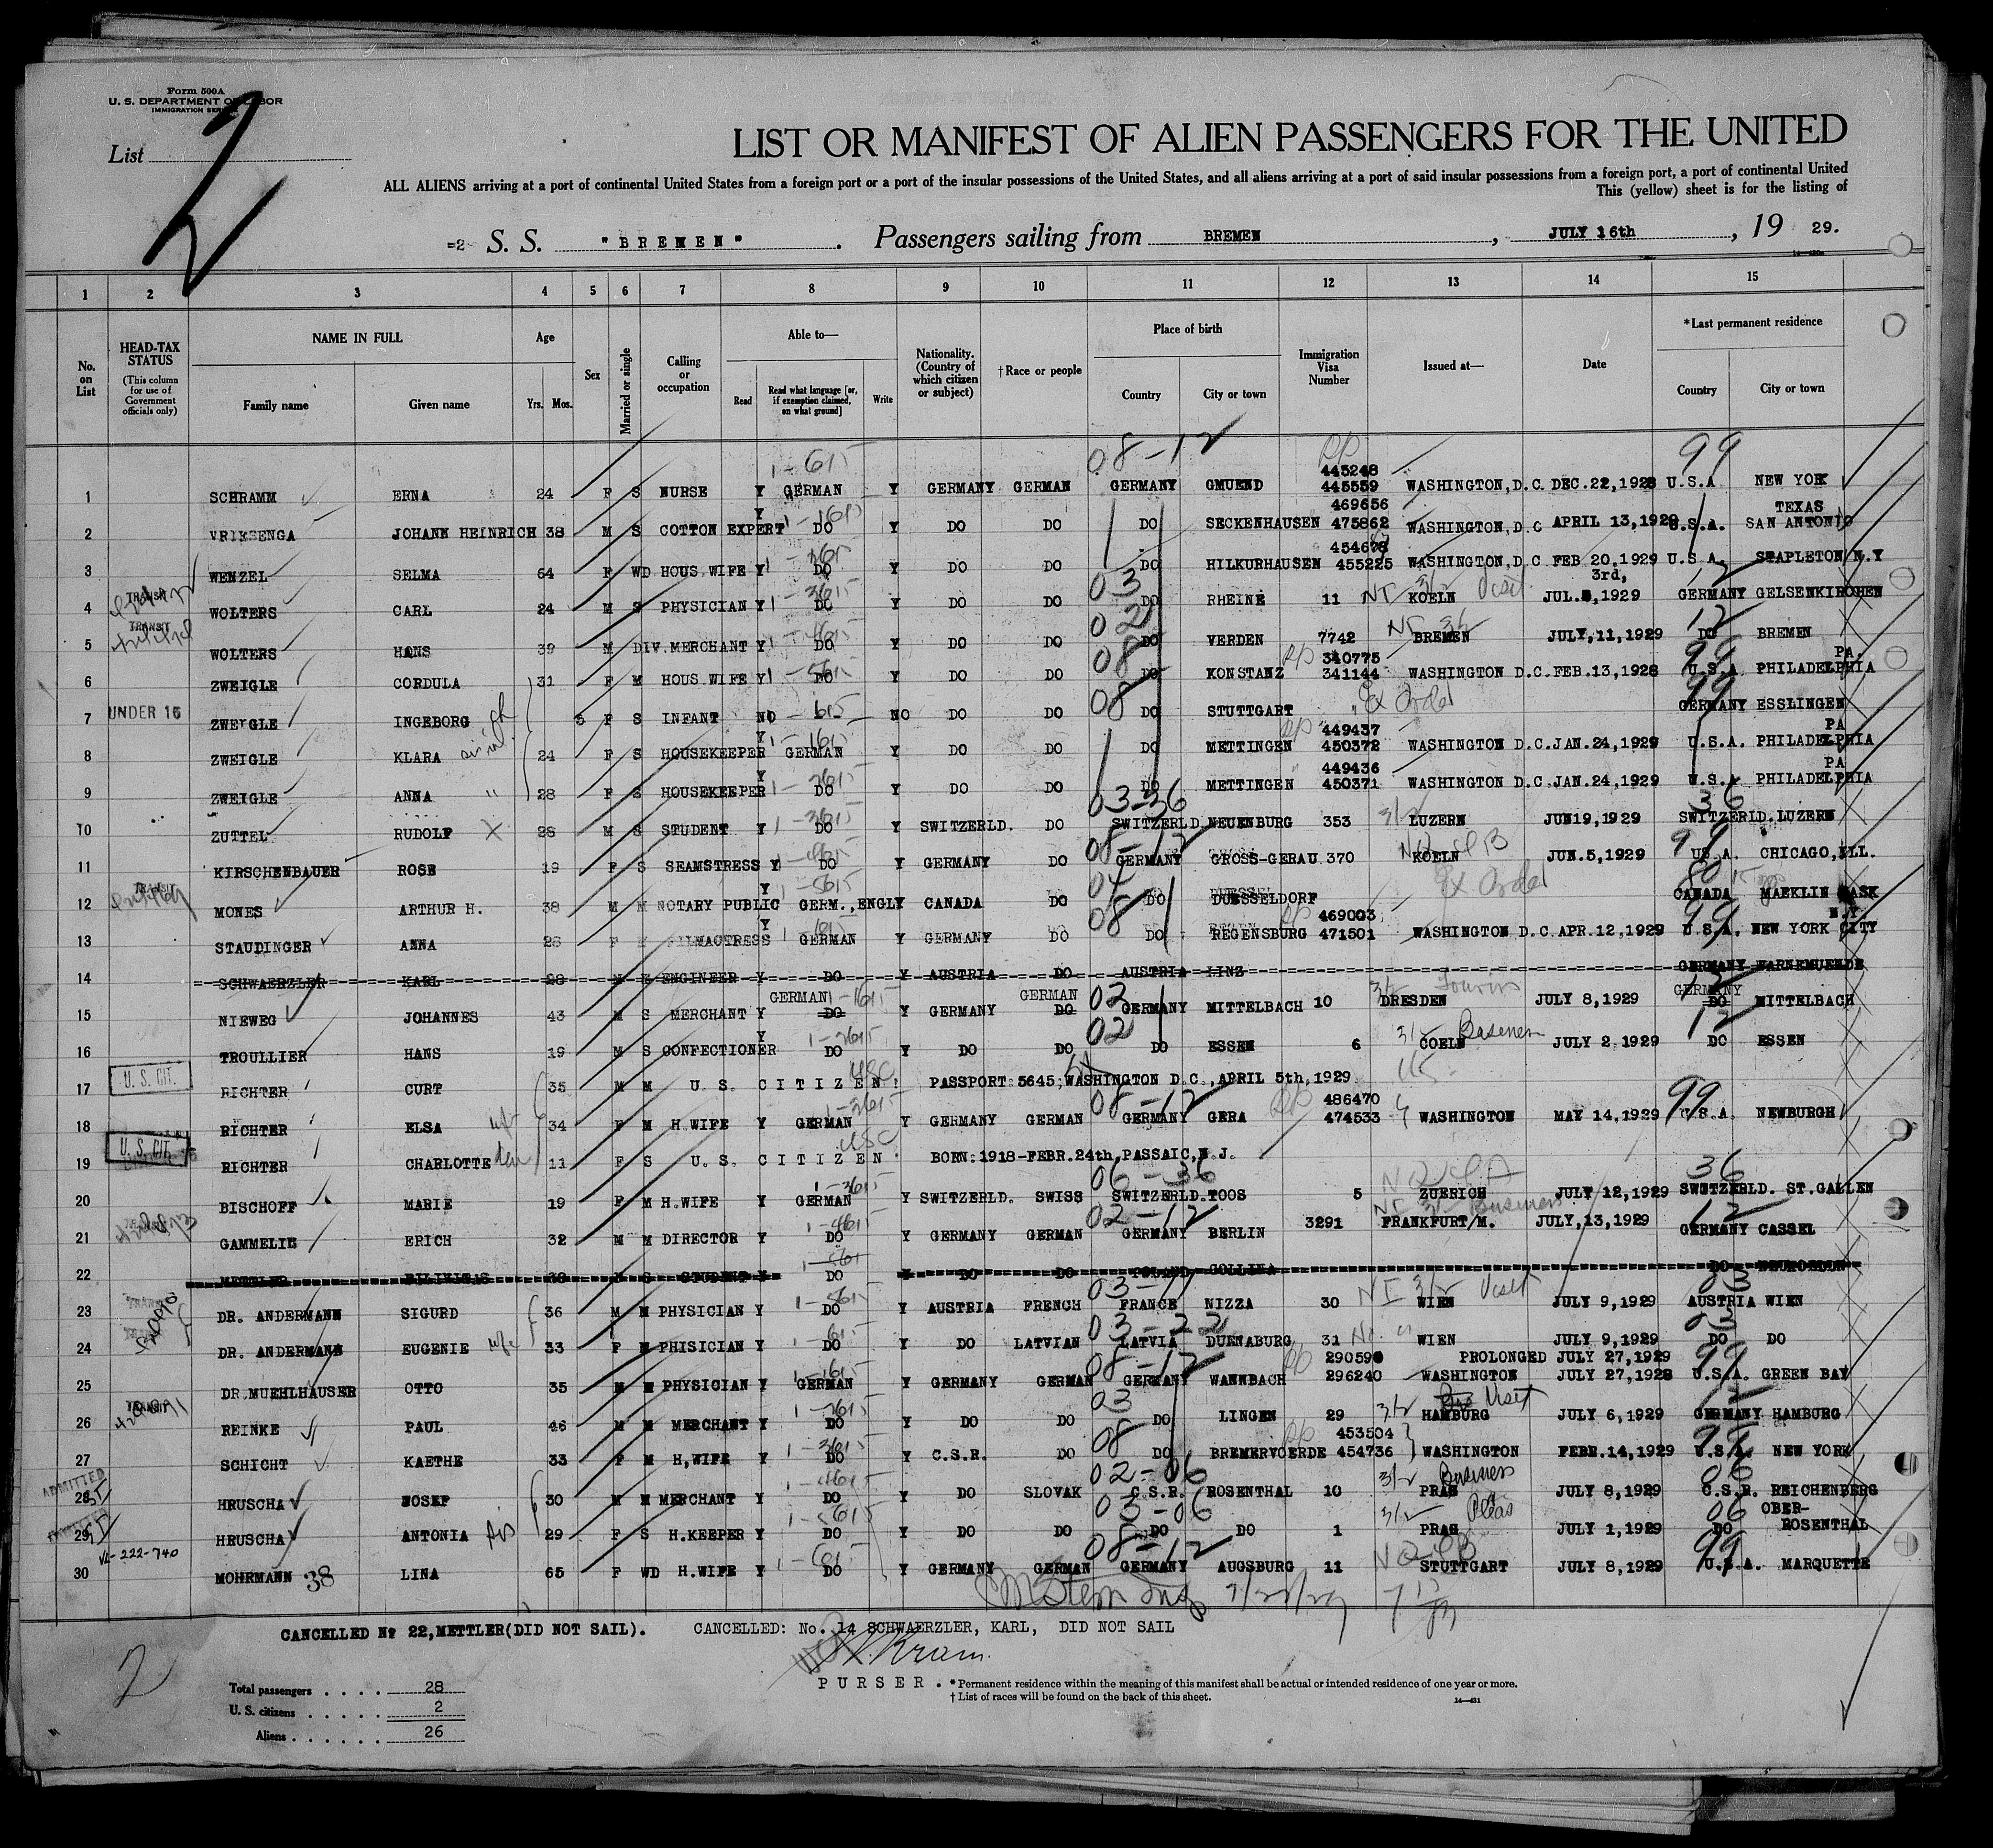 Form 500A
U. S. DEPARTMENT OF LABOR
IMMIGRATION SERVICE
List 2
LIST OR MANIFEST OF ALIEN PASSENGERS FOR THE UNITED
ALL ALIENS arriving at a port of continental United States from a foreign port or a port of the insular possessions of the United States, and all aliens arriving at a port of said insular possessions from a foreign port, a port of continental United
This (yellow) sheet is for the listing of
=2 S. S. "BREMEN". Passengers sailing from BREMEN, JULY 16th, 19 29.
1 2 3 4 5 6 7 8 9 10 11 12 13 14 15
No. on List HEAD-TAX STATUS (This column for use of Government officials only) NAME IN FULL Family name Given name Age Yrs. Mos. Sex Married or single Calling or occupation Able to— Read Read what language [or, if exemption claimed, on what ground] Write Nationality. (Country of which citizen or subject) †Race or people Place of birth Country City or town Immigration Visa Number Issued at— Date *Last permanent residence Country City or town
08-12 99
1 SCHRAMM ERNA 24 F S NURSE Y GERMAN Y GERMANY GERMAN GERMANY GMUEND 445248 445559 WASHINGTON, D.C. DEC.22,1928 U.S.A NEW YORK
2 VRIESENGA JOHANN HEINRICH 38 M S COTTON EXPERT Y DO Y DO DO DO SECKENHAUSEN 469656 475862 WASHINGTON, D.C APRIL 13,1929 U.S.A. TEXAS SAN ANTONIO
3 WENZEL SELMA 64 F WD HOUS WIFE Y DO Y DO DO DO HILKURHAUSEN 454678 455225 WASHINGTON, D.C FEB 20,1929 U.S.A. STAPLETON N.Y
4 TRANSIT WOLTERS CARL 24 M S PHYSICIAN Y DO Y DO DO DO RHEINE 11 KOELN Visit JUL. 3rd, 1929 GERMANY GELSENKIRCHEN
5 TRANSIT WOLTERS HANS 39 M DIV. MERCHANT Y DO Y DO DO DO VERDEN 7742 BREMEN JULY,11,1929 DO BREMEN
6 ZWEIGLE CORDULA 31 F M HOUS WIFE Y DO Y DO DO DO KONSTANZ 340775 341144 WASHINGTON D.C. FEB.13,1928 U.S.A PHILADELPHIA PA.
7 UNDER 16 ZWEIGLE INGEBORG 5 F S INFANT NO NO DO DO DO STUTTGART Ex Order GERMANY ESSLINGEN
8 ZWEIGLE KLARA 24 F S HOUSEKEEPER Y GERMAN Y DO DO DO METTINGEN 449437 450372 WASHINGTON D.C. JAN.24,1929 U.S.A. PHILADELPHIA PA
9 ZWEIGLE ANNA " 28 F S HOUSEKEEPER Y DO Y DO DO DO METTINGEN 449436 450371 WASHINGTON D.C. JAN.24,1929 U.S.A. PHILADELPHIA PA
10 ZUTTEL RUDOLF X 28 M S STUDENT Y DO Y SWITZERLD. DO SWITZERLD. NEUENBURG 353 LUZERN JUN19,1929 SWITZERLD. LUZERN
11 KIRSCHENBAUER ROSE 19 F S SEAMSTRESS Y DO Y GERMANY DO GERMANY GROSS-GERAU 370 KOELN JUN.5,1929 US.A. CHICAGO, ILL.
12 TRANSIT MONES ARTHUR H. 38 M M NOTARY PUBLIC Y GERM.,ENGL Y CANADA DO DO DUESSELDORF Ex Order CANADA MAEKLIN SASK
13 STAUDINGER ANNA 26 F M FILMACTRESS Y GERMAN Y GERMANY DO DO REGENSBURG 469003 471501 WASHINGTON D.C. APR.12,1929 U.S.A. NEW YORK CITY N.Y
14 SCHWAERZLER KARL 28 M M ENGINEER Y DO Y AUSTRIA DO AUSTRIA LINZ GERMANY WARNEMUENDE
15 NIEWEG JOHANNES 43 M S MERCHANT Y DO GERMAN Y GERMANY DO GERMAN GERMANY MITTELBACH 10 DRESDEN JULY 8,1929 DO GERMANY MITTELBACH
16 TROULLIER HANS 19 M S CONFECTIONER Y DO Y DO DO DO ESSEN 6 COELN Business JULY 2,1929 DO ESSEN
17 U. S. CIT. RICHTER CURT 35 M M U.S. CITIZEN! USC PASSPORT:5645;WASHINGTON D.C., APRIL 5th,1929
18 RICHTER ELSA wife 34 F M H.WIFE Y GERMAN Y GERMANY GERMAN GERMANY GERA 486470 474533 WASHINGTON MAY 14,1929 U.S.A. NEWBURGH
19 U. S. CIT. RICHTER CHARLOTTE 11 F S U.S. CITIZEN USC BORN:1918-FEBR.24th,PASSAIC,N.J.
20 BISCHOFF MARIE 19 F M H.WIFE Y GERMAN Y SWITZERLD. SWISS SWITZERLD. TOOS 5 ZUERICH JULY 12,1929 SWITZERLD. ST.GALLEN
21 GAMMELIE ERICH 32 M M DIRECTOR Y DO Y GERMANY GERMAN GERMANY BERLIN 3291 FRANKFURT/M. JULY,13,1929 GERMANY CASSEL
22 METTLER F S STUDENT Y DO Y DO DO POLAND DO
23 DR. ANDERMANN SIGURD 36 M M PHYSICIAN Y DO Y AUSTRIA FRENCH FRANCE NIZZA 30 WIEN Visit JULY 9,1929 AUSTRIA WIEN
24 DR. ANDERMANN EUGENIE wife 33 F M PHISICIAN Y DO Y DO LATVIAN LATVIA DUENABURG 31 WIEN JULY 9,1929 DO DO
25 DR.MUEHLHAUSER OTTO 35 M M PHYSICIAN Y GERMAN Y GERMANY GERMAN GERMANY WANNBACH 296240 PROLONGED JULY 27,1929 WASHINGTON JULY 27,1928 U.S.A. GREEN BAY
26 REINKE PAUL 46 M M MERCHANT Y DO Y DO DO DO LINGEN 29 HAMBURG Visit JULY 6,1929 GERMANY HAMBURG
27 SCHICHT KAETHE 33 F M H,WIFE Y DO Y C.S.R. DO DO BREMERVOERDE 453504 454736 WASHINGTON FEBR.14,1929 U.S.A. NEW YORK
28 ADMITTED HRUSCHA JOSEF 30 M M MERCHANT Y DO Y DO SLOVAK C.S.R. ROSENTHAL 10 PRAG Business JULY 8,1929 C.S.R. REICHENBERG
29 HRUSCHA ANTONIA 29 F S H.KEEPER Y DO Y DO DO DO DO 1 PRAG Pleas JULY 1,1929 DO OBER-ROSENTHAL
30 VL-222-740 MOHRMANN 38 LINA 65 F WD H.WIFE Y DO Y GERMANY GERMAN GERMANY AUGSBURG 11 STUTTGART JULY 8,1929 U.S.A. MARQUETTE
7/22/29
CANCELLED No 22,METTLER(DID NOT SAIL). CANCELLED: No. 14 SCHWAERZLER, KARL, DID NOT SAIL
2
PURSER.
* Permanent residence within the meaning of this manifest shall be actual or intended residence of one year or more.
† List of races will be found on the back of this sheet.
14—431
Total passengers . . . . 28
U. S. citizens . . . . . 2
Aliens . . . . . . 26